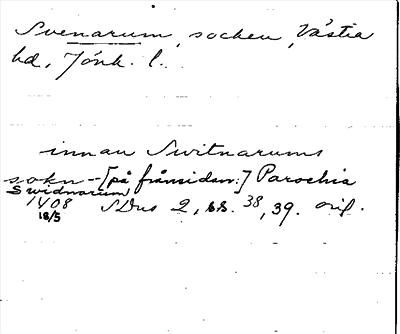 Svenarum, socken, Västra
hd, Jönk. l.
innan Switnarums
sokn - [på frånsidan:] Parochia
Swidnarum
1408 SDns 2, ss. 38, 39. orig.
18/5